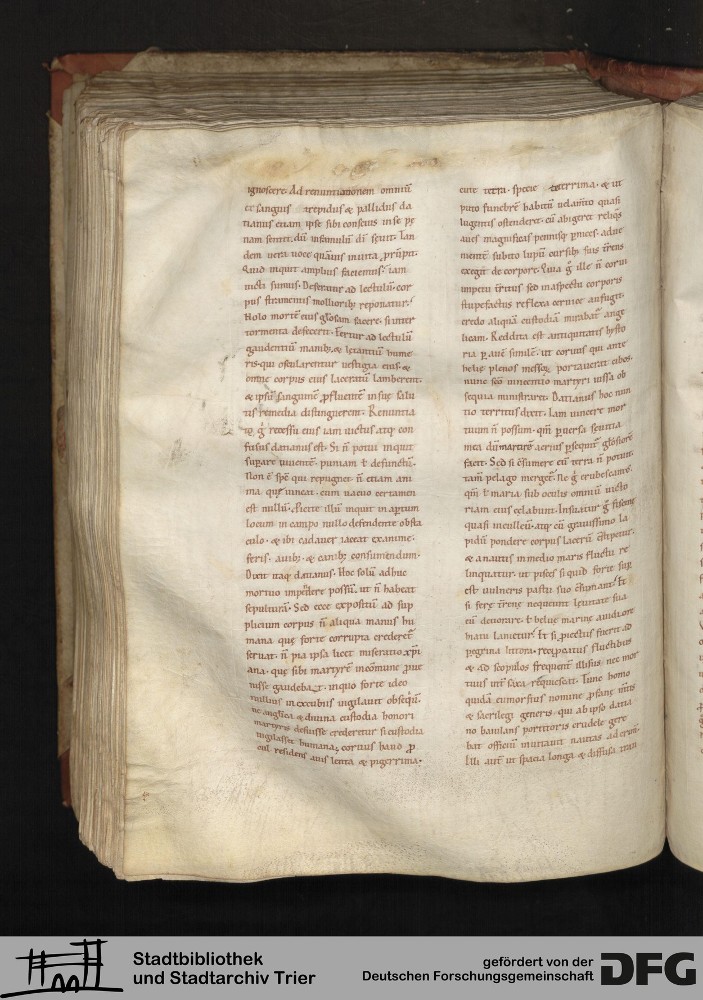 ignoscere. Ad renuntiationem omniū
et sanguis trepidus & pallidus da
tianus etiam ipse sibi conscius inse pę
nam sentit. dū insanulū dī seuit. Tan
dem uera uoce quāuis inuita prūpit.
Quid inquit amplius faciemus? iam
uicti sumus. Deferatur ad lectulū. cor
pus stramentis mollioribꝫ reponatur.
Nolo mortē eius glosam facere. si inter
tormenta defecerit. Fertur ad lectulū
gaudentiū manibꝫ. & letantiū hume
ris. qui oscularentur uestigia eius. &
omne corpus eius laceratū lamberent.
& ipsū sanguinē ꝓfluentē in suę salu
tis remedia distinguerent. Renuntia
to ḡ recessu eius iam uictus atqꝫ con
fusus datianus est. Si ñ potui inquit
supare uiuentē. puniam ł defunctū.
Non ē spēs qui repugnet. ñ etiam ani
ma que uincat. cum uacuo certamen
est nullū. Proicite illū inquit in aptum
locum in campo nullo defendente obsta
culo. & ibi cadauer iaceat exanime.
feris. auibꝫ. & canibꝫ consumendum.
Dixit itaqꝫ datianus. Hoc solū adhuc
mortuo impedere possū. ut ñ habeat
sepulturā. Sed ecce expositū ad sup
plicium corpus ñ aliqua manus hu
mana quę forte corrupta crederet
seruat. ñ pia ipsa licet miseratio xp̄i
ana. quę sibi martyrē incōmune ꝓue
nisse gaudebat. inquo forte ideo
nullius in excubiis uigilauit obsequiū.
ne anglica & diuina custodia honori
martyris defuisse crederetur si custodia
uigilasset humana. coruus haud ꝓ
cul residens auis lenta & pigerrima.
cute tetra. specie teterrima. & ut
puto funebrē habitū uelamto quasi
lugentis ostenderet. cū abigeret reliqs
aues magnificas pennisqꝫ pnices. adue
nientē subito lupū cursibꝫ suis trens
exegit de corpore. Quia ḡ ille ñ corui
impetu tritus sed inaspectu corporis
stupefactus reflexa ceruice aufugit.
credo aliquā custodiā mirabat ange
licam. Reddita est antiquitatis hysto
ria p auē similē. ut coruus qui ante
helie plenos messoꝝ portauerat cibos.
nunc scō uincentio martyri iussa ob
sequia ministraret. Datianus hoc nun
tio territus dixit. Iam uincere mor
tuum ñ possum. qm̄ puersa seuitia
mea dū martirē acrius psequit gloriosē
facit. Sed si cōsumere eū terra ñ potuit.
tam pelago mergetʼ. Ne ḡ erubescam?
qm̄ ł maria sub oculis omniū uicto
riam eius celabunt. Insuatur ḡ
quasi inculleū. atqꝫ cū grauissimo la
pidū pondere corpus lacerū
& a nautis in medio maris fluctu re
linquatur. ut pisces si quid forte sup
est uulneris pastu suo cōsumant. Et
si ferę trene nequeunt leuitate sua
eū deuorare. ł belue marine auidiore
hiatu lanietur. Et si piectus fuerit ad
pegrina littora. recoꝓatus fluctibus
& ad scopulos frequent illisus. nec mor
tuus int saxa requiescat. Tunc homo
quidā eumorfius nomine ꝓfane mtis
& sacrilegi generis. qui ab ipso datia
no baiulans portitoris crudele gere
bat officiū mutauit nautas ad crimē.
Illi aut ut spacia longa & diffusa tran
Stadtbibliothek
und Stadtarchiv Trier
gefördert von der
Deutschen Forschungsgemeinschaft
DFG